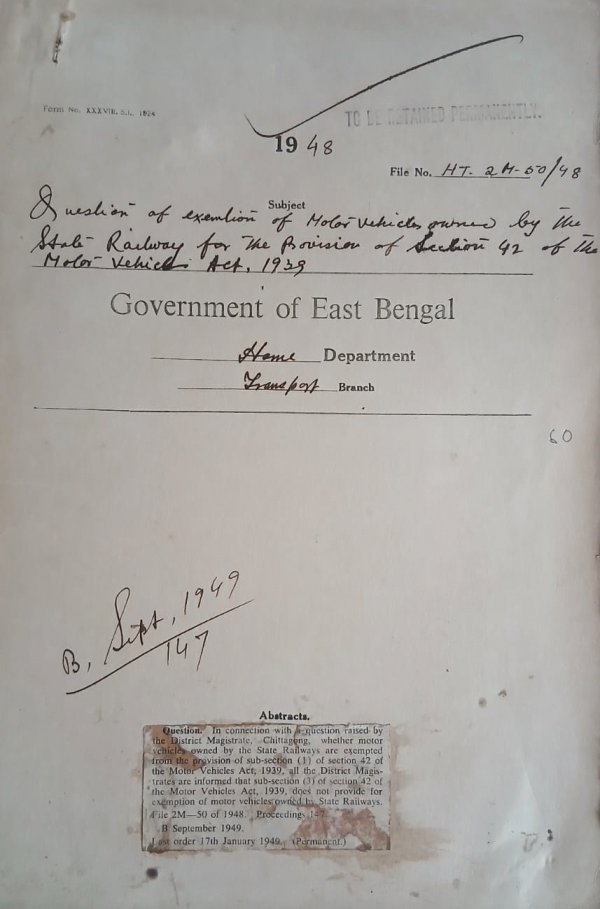 Form No. XXXVIII. S.L. 1934
TO BE RETAINED PERMANENTLY.
1948
File No. HT. 2M-50/48
Subject
Question of exemtion of Motor Vehicles owned by the
State Railway for the Provision of Section 42 of the
Motor Vehicles Act, 1939
Government of East Bengal
Home Department
Transport Branch
60
B, Sept, 1949
147
Abstracts.
Question. In connection with a question raised by
the District Magistrate, Chittagong, whether motor
vehicles owned by the State Railways are exempted
from the provision of sub-section (1) of section 42 of
the Motor Vehicles Act, 1939, all the District Magis-
trates are informed that sub-section (3) of section 42 of
the Motor Vehicles Act, 1939, does not provide for
exemption of motor vehicles owned by State Railways.
File 2M—50 of 1948. Proceedings 147
B September 1949.
Last order 17th January 1949. (Permanent.)